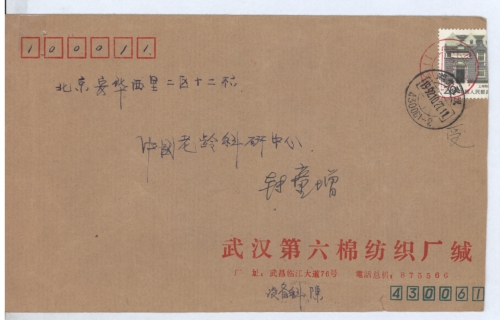 100011
北京安华西里二区十二栋
中国老龄科研中心
钟童增
武汉第六棉纺织厂缄
厂 址：武昌临江大道76号 电话总机：875566
设备科 陈
430061